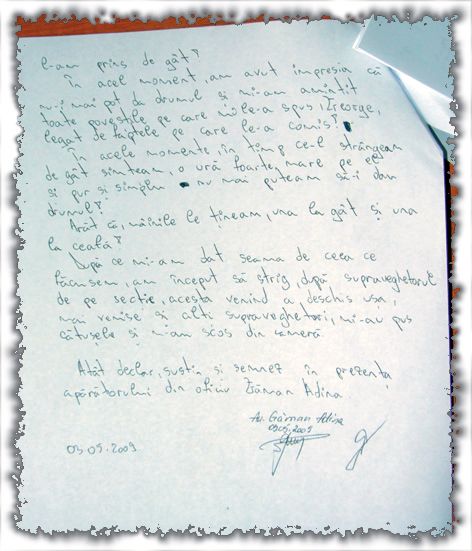 l-am prins de gât?
În acel moment, am avut impresia că
nu-i mai pot da drumul și mi-am amintit
toate poveștile pe care mi le-a spus, George,
legat de faptele pe care le-a comis!
În acele momente, în timp ce-l strângeam
de gât simțeam, o ură foarte, mare pe el
și pur și simplu nu mai puteam să-i dau
drumul?
Arăt că, mâinile le țineam, una la gât și una
la ceafă?
După ce mi-am dat seama de ceea ce
făcusem, am început să strig, după supraveghetorul
de pe secție, acesta venind a deschis ușa,
mai venise și alți supraveghetori, mi-au pus
cătușele și m-am scos din cameră
Atât declar, susțin și semnez în prezența
apărătorului din oficiu Găman Adina
Av. Găman Adina
03.05.2009
03.05.2009